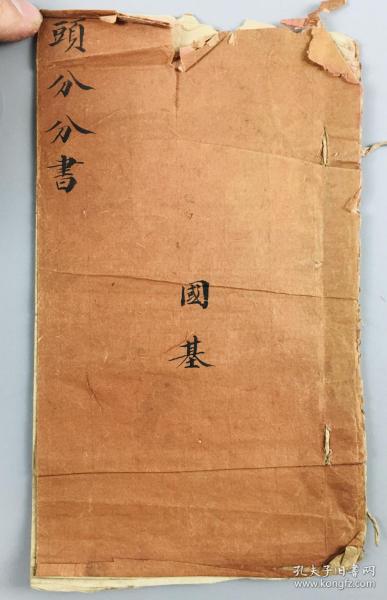 頭分分書
國基
孔夫子旧书网
www.kongfz.com